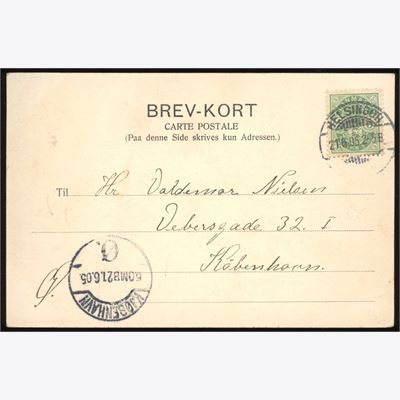 BREV-KORT
CARTE POSTALE
(Paa denne Side skrives kun Adressen.)
HELSINGØR
21.6.05. 2-3 E
Til Hr Valdemar Nielsen
Webersgade 32. I
København.
KJØBENHAVN
5 OMB 21.6.05.